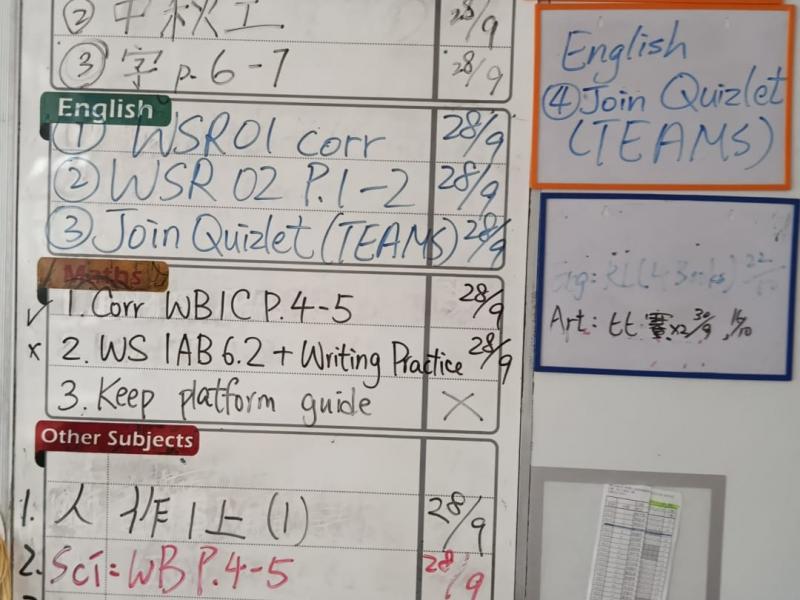 ② 中秋工 28/9
③ 字 p. 6-7 28/9
English
① WSR01 corr 28/9
② WSR 02 P.1-2 28/9
③ Join Quizlet (TEAMS) 28/9
Maths
✓ 1. Corr WB1C P.4-5 28/9
x 2. WS 1AB 6.2 + Writing Practice 28/9
3. Keep platform guide ×
Other Subjects
1. 人 作1上(1) 28/9
2. Sci: WB P.4-5 28/9
English
④ Join Quizlet
(TEAMS)
Art: 比賽x2 30/9, 14/10